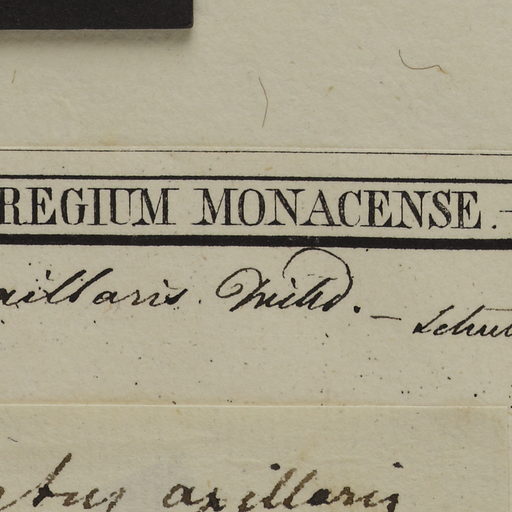 REGIUM MONACENSE.
axillaris. Willd. – Schul
axillaris